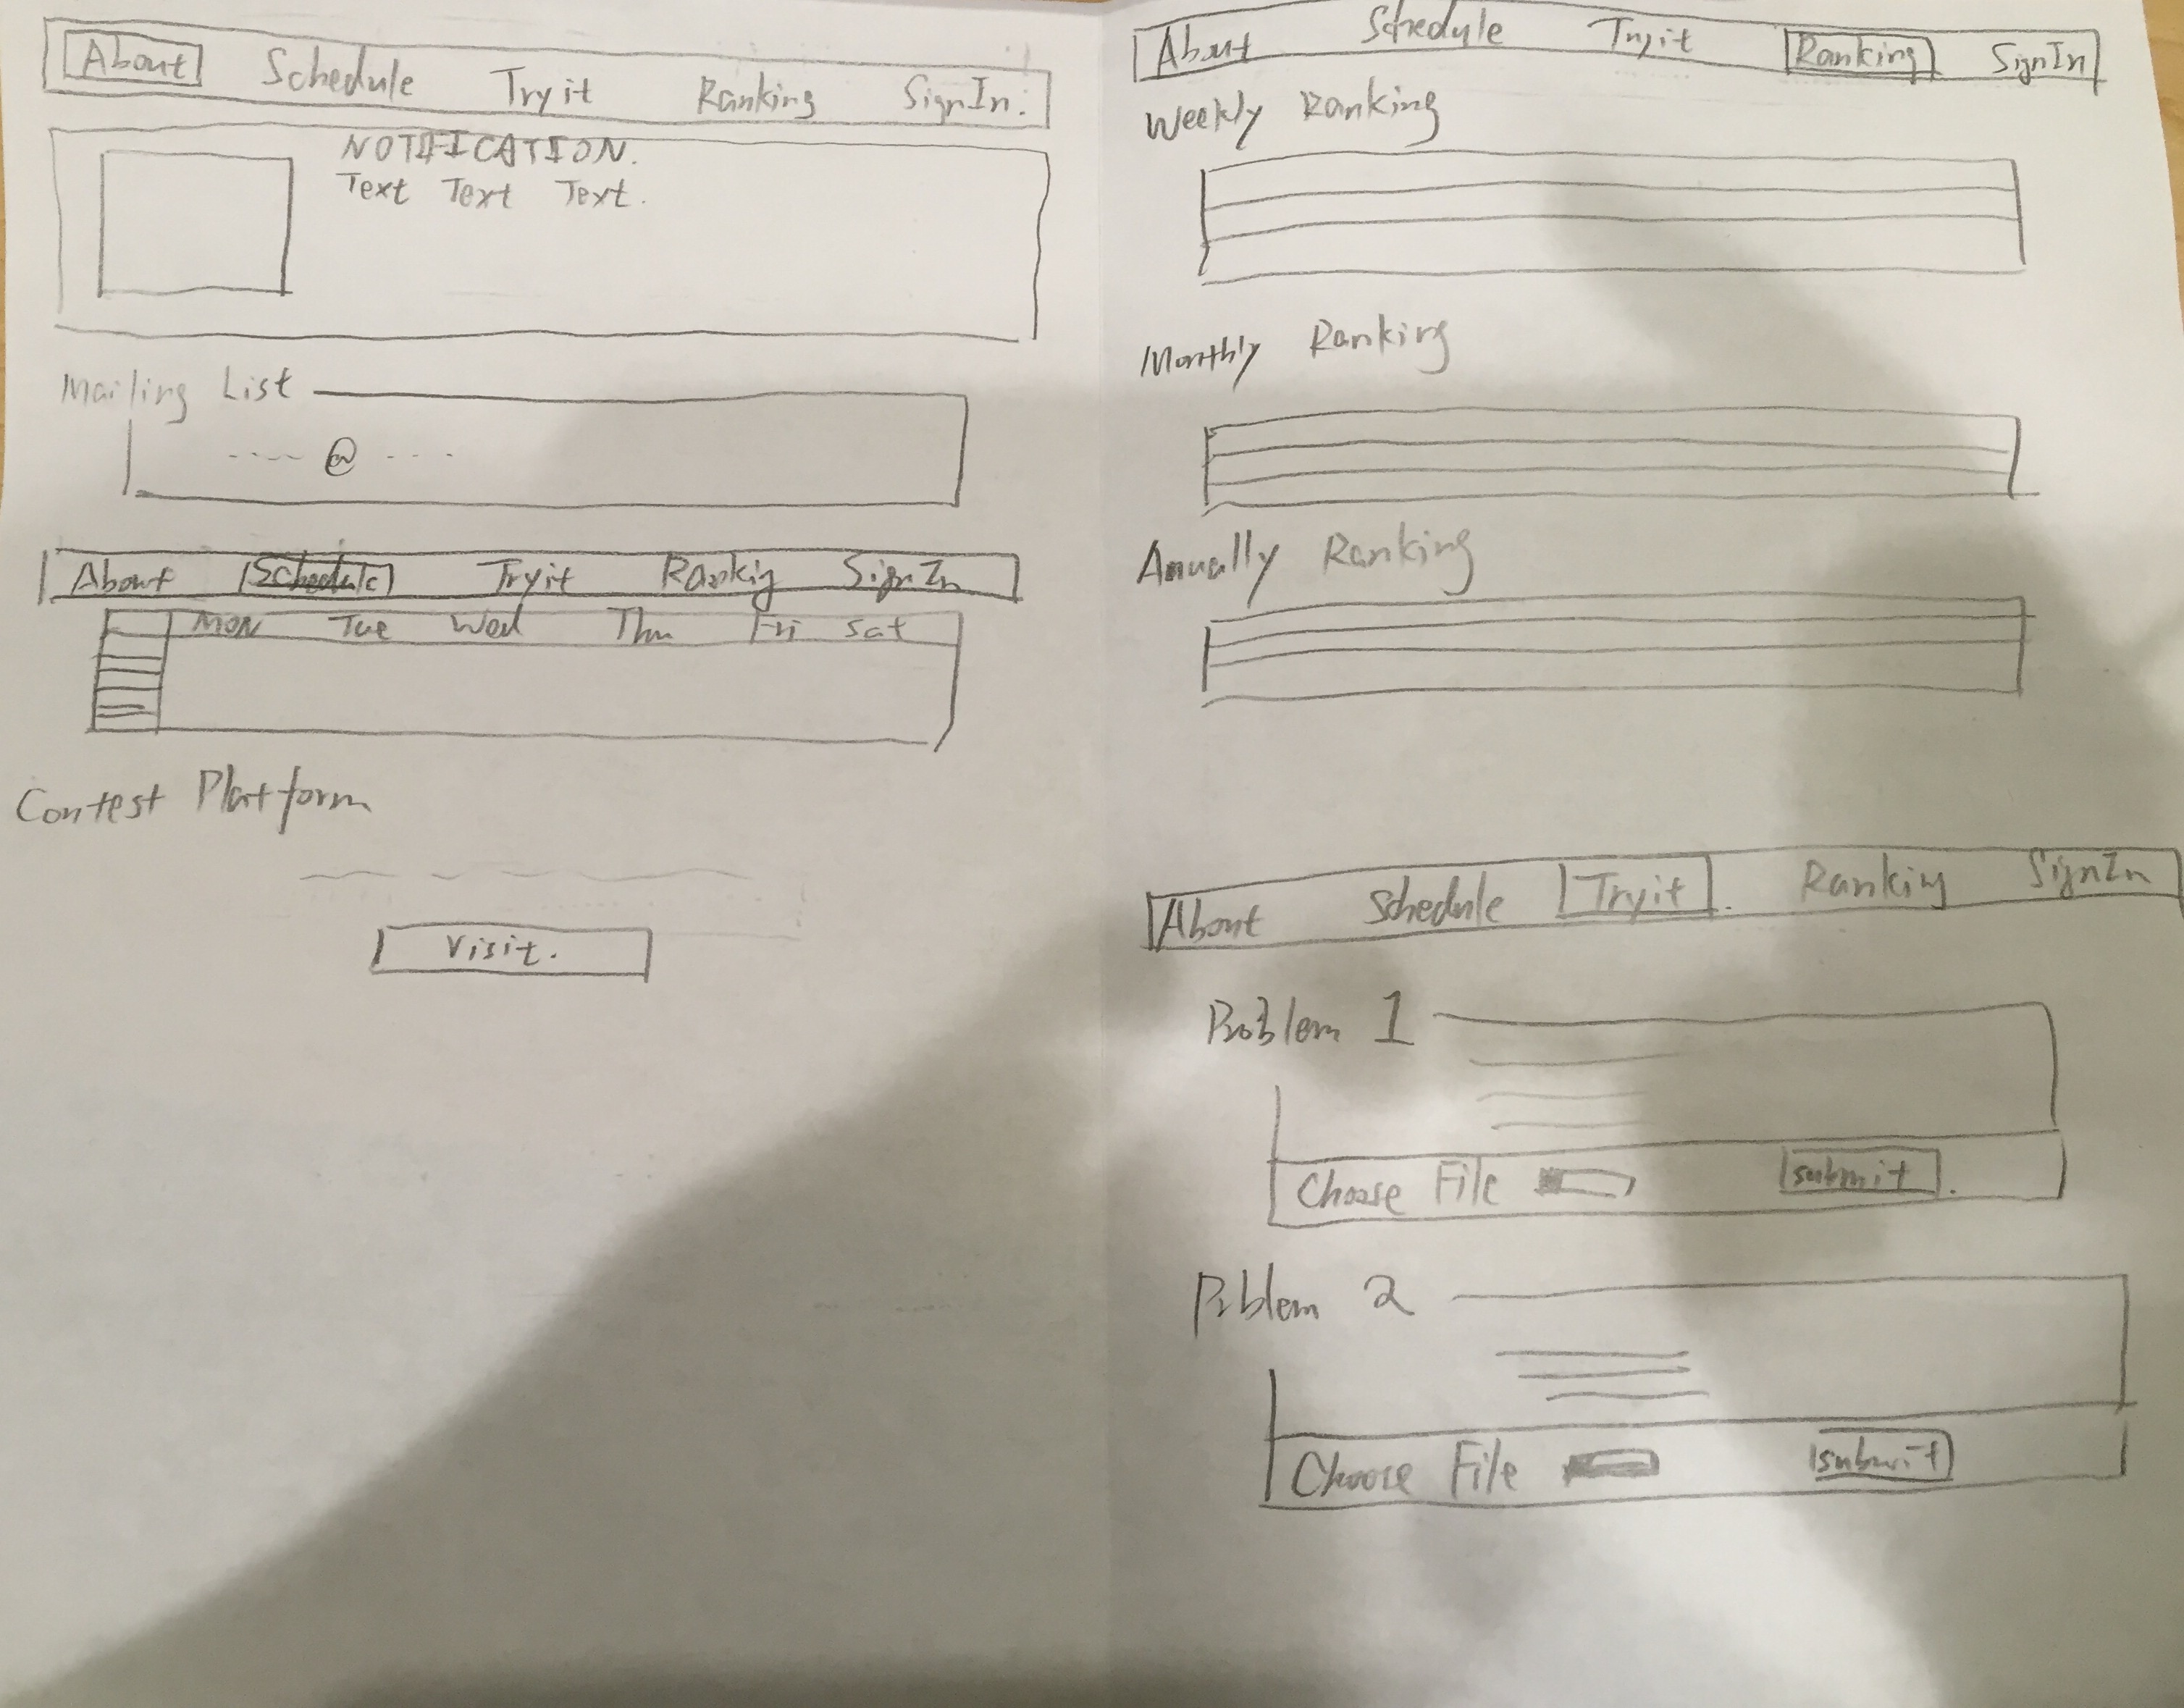 About Schedule Tryit Ranking SignIn.
NOTIFICATION.
Text Text Text.
Mailing List
---- @ ----
About Schedule Tryit Rankig SignIn
MON Tue Wed Thu Fri Sat
Contest Platform
Visit.
About Schedule Tryit Ranking SignIn
Weekly Ranking
Monthly Ranking
Anually Ranking
About Schedule Tryit. Ranking SignIn
Problem 1
Choose File submit.
Problem 2
Choose File submit